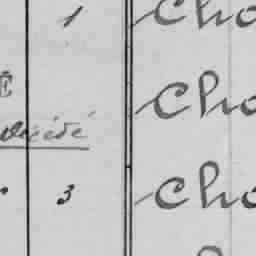 1 Cho
É Cho
décédé
3 Cho